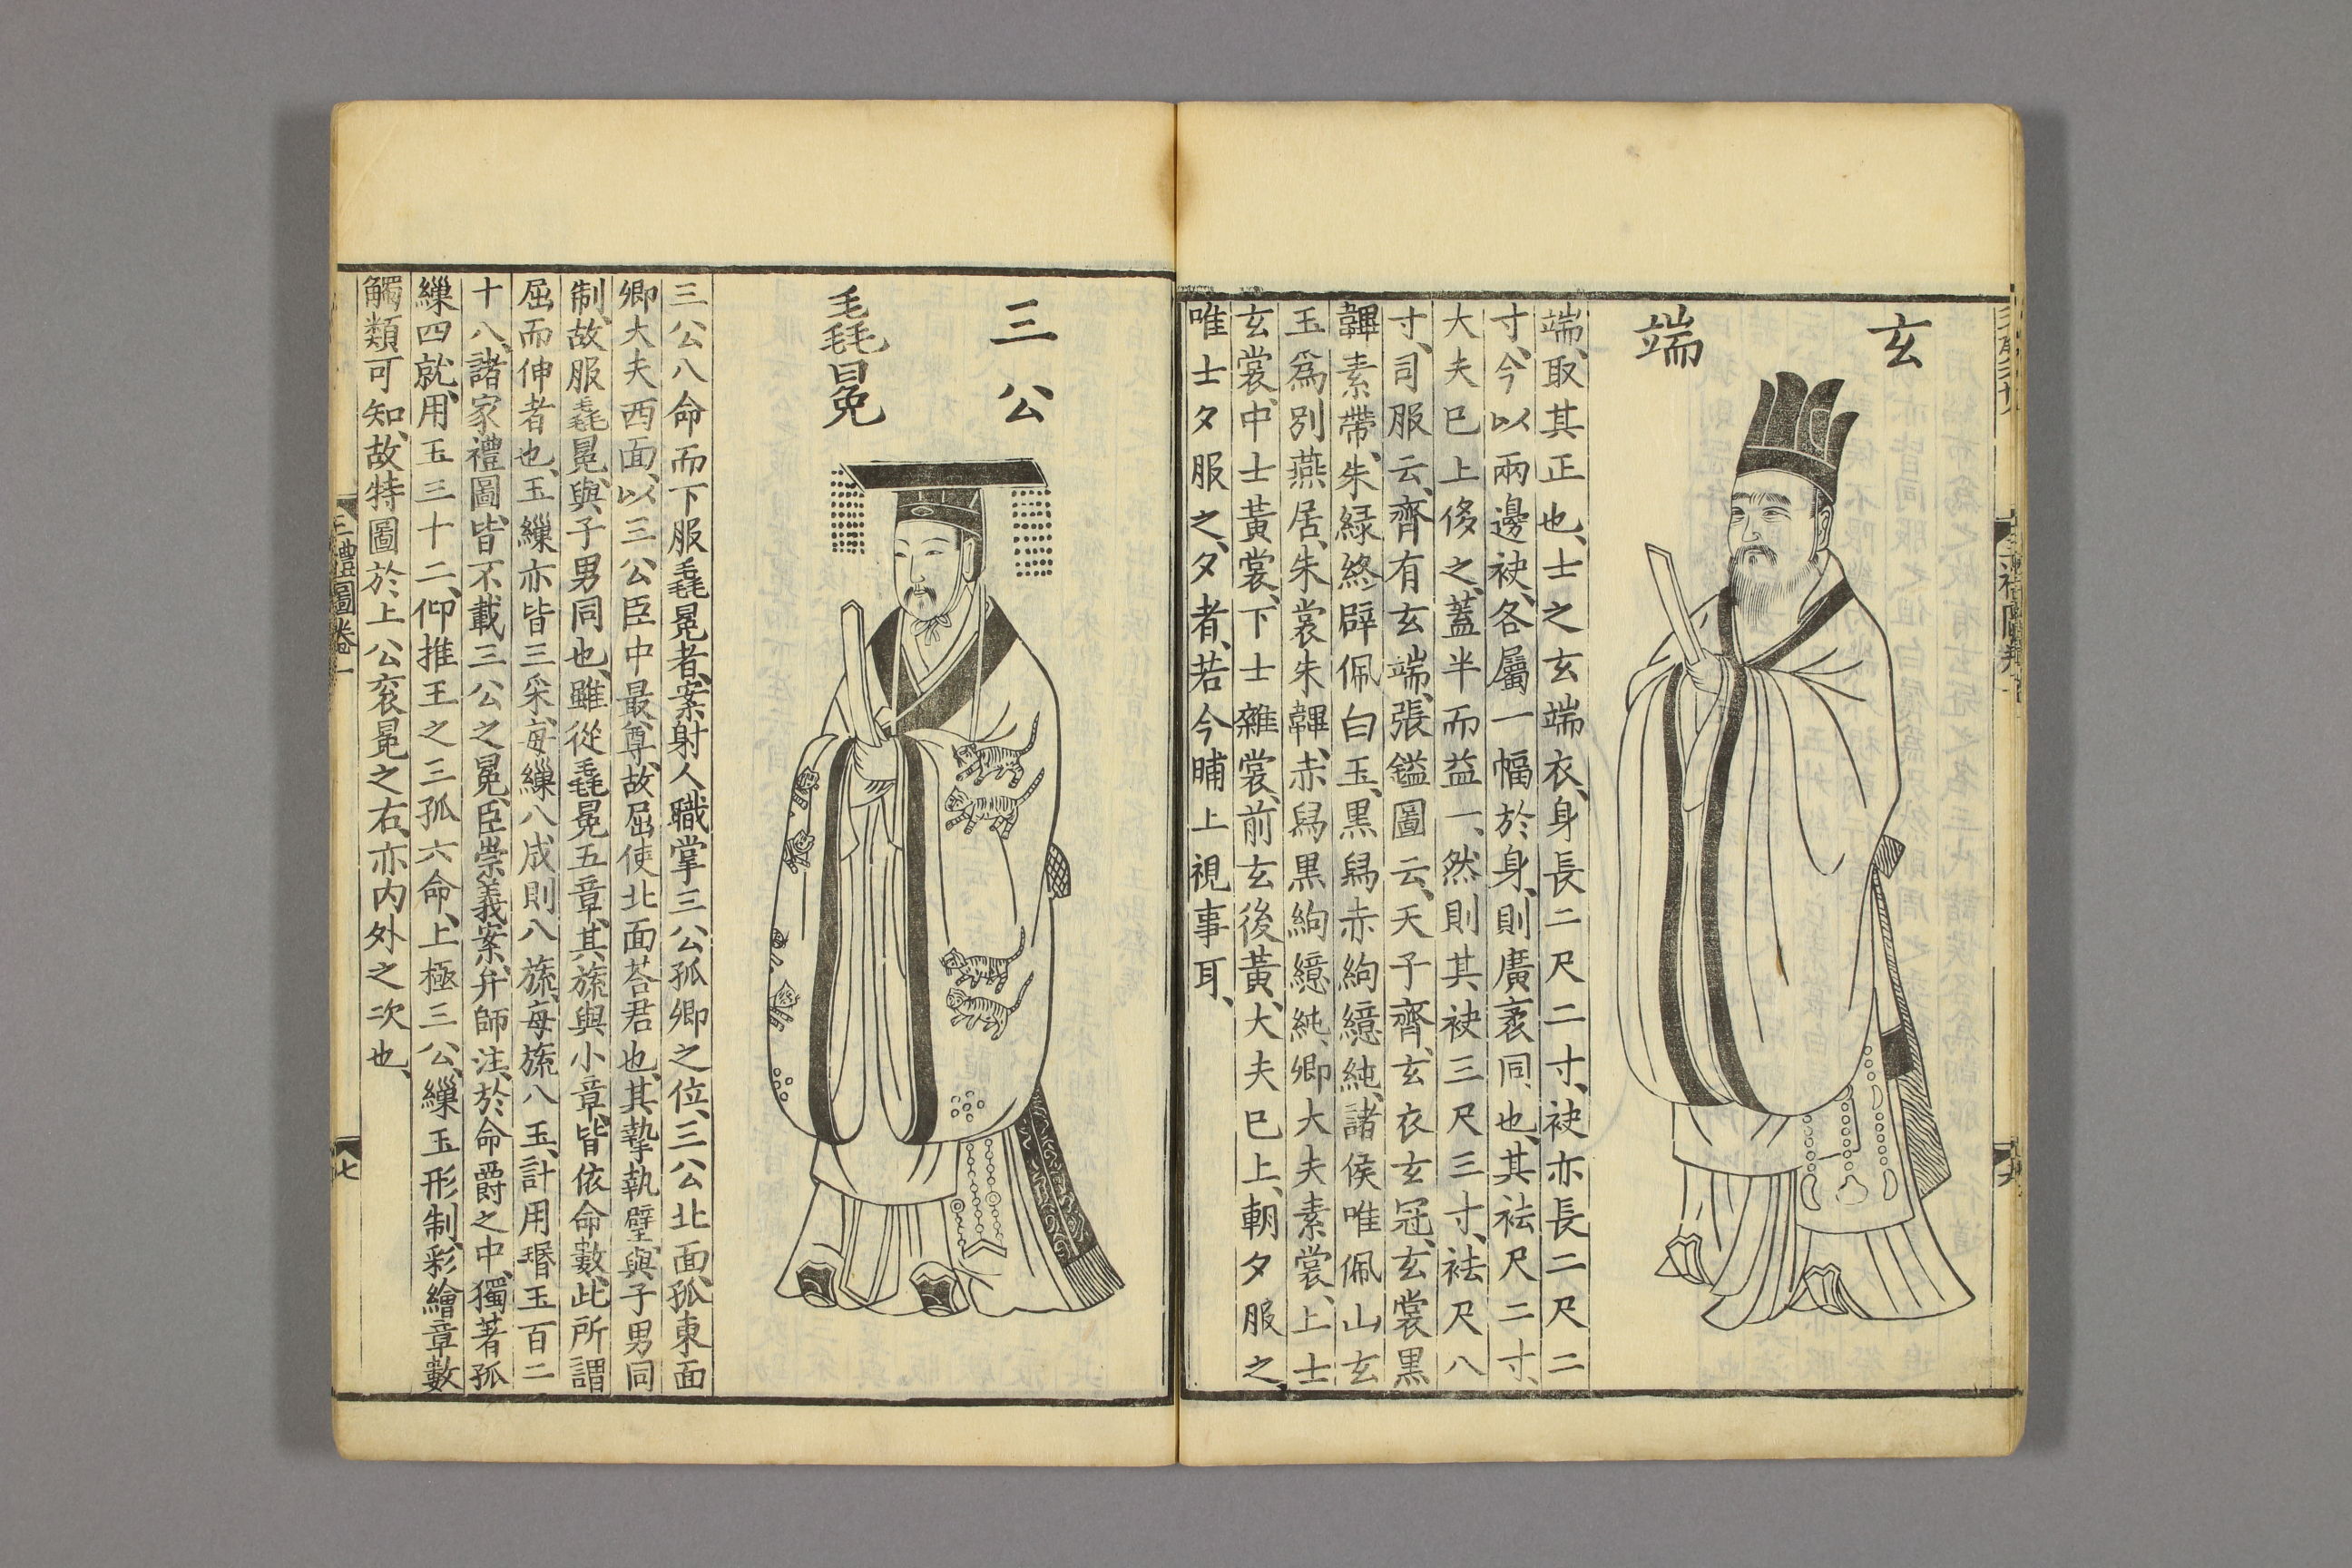 玄端
端、取其正也、士之玄端衣、身長二尺二寸、袂亦長二尺二
寸、今以兩邊袂、各屬一幅於身、則廣袤同也、其袪尺二寸、
大夫巳上侈之、蓋半而益一、然則其袂三尺三寸、袪尺八
寸、司服云、齊有玄端、張鎰圖云、天子齊、玄衣玄冠、玄裳黑
韠素帶、朱緑終辟佩白玉、黑舄赤絇繶純、諸侯唯佩山玄
玉爲別燕居、朱裳朱韠、赤舄黑絇繶純、卿大夫素裳、上士
玄裳、中士黃裳、下士雜裳、前玄後黃、大夫巳上、朝夕服之、
唯士夕服之、夕者、若今晡上視事耳、
三公
毳冕
三公八命而下服毳冕者、案射人職掌三公孤卿之位、三公北面、孤東面
卿大夫西面、以三公臣中最尊、故屈使北面荅君也、其摯執璧與子男同
制、故服毳冕、與子男同也、雖從毳冕五章、其旒與小章、皆依命數、此所謂
屈而伸者也、玉繅亦皆三采、每繅八成則八旒、每旒八玉、計用瑉玉百二
十八、諸家禮圖、皆不載三公之冕、臣崇義案、弁師注、於命爵之中、獨著孤
繅四就、用玉三十二、仰推王之三孤六命、上極三公、繅玉形制、彩繪章數
觸類可知、故特圖於上公袞冕之右、亦內外之次也、
三禮圖卷一
七